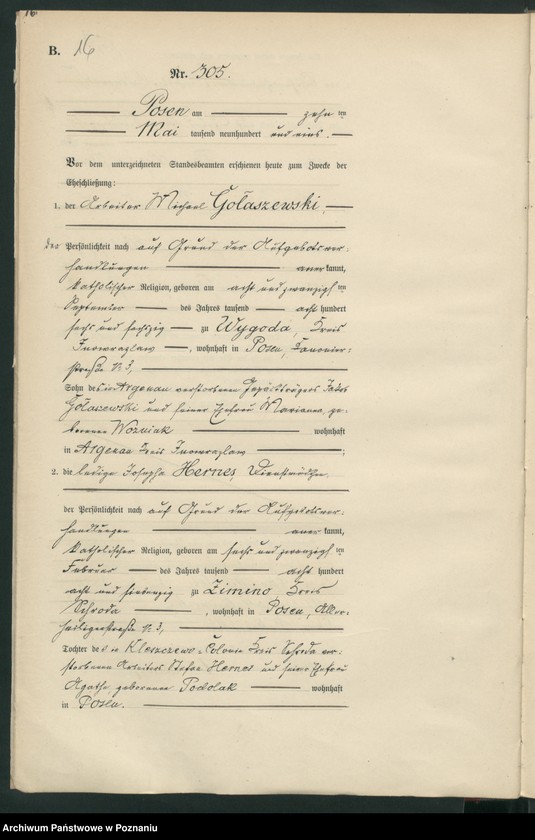 16
B. 16
Nr. 305.
Posen am zehn ten
Mai tausend neunhundert und eins.
Vor dem unterzeichneten Standesbeamten erschienen heute zum Zwecke der
Eheschließung:
1. der Arbeiter Michael Gołaszewski,
der Persönlichkeit nach auf Grund der Aufgebotsver-
handlungen anerkannt,
katholischer Religion, geboren am acht und zwanzigsten
September des Jahres tausend acht hundert
sechs und sechszig zu Wygoda, Kreis
Inowrazlaw, wohnhaft in Posen, Kanonier-
straße N 3,
Sohn des in Argenau verstorbenen Gepäckträgers Jakob
Gołaszewski und seiner Ehefrau Marianna, ge-
borenen Wozniak wohnhaft
in Argenau Kreis Inowrazlaw;
2. die ledige Josepha Hernes, Dienstmädchen
der Persönlichkeit nach auf Grund der Aufgebotsver-
handlungen anerkannt,
katholischer Religion, geboren am sechs und zwanzigsten
Februar des Jahres tausend acht hundert
acht und siebenzig zu Zimino, Kreis
Schroda, wohnhaft in Posen, Aller-
heiligenstraße N 3,
Tochter des in Kleszczewo-Colonie Kreis Schroda ver-
storbenen Arbeiters Stefan Hernes und seiner Ehefrau
Agathe, geborenen Podolak wohnhaft
in Posen.
Archiwum Państwowe w Poznaniu